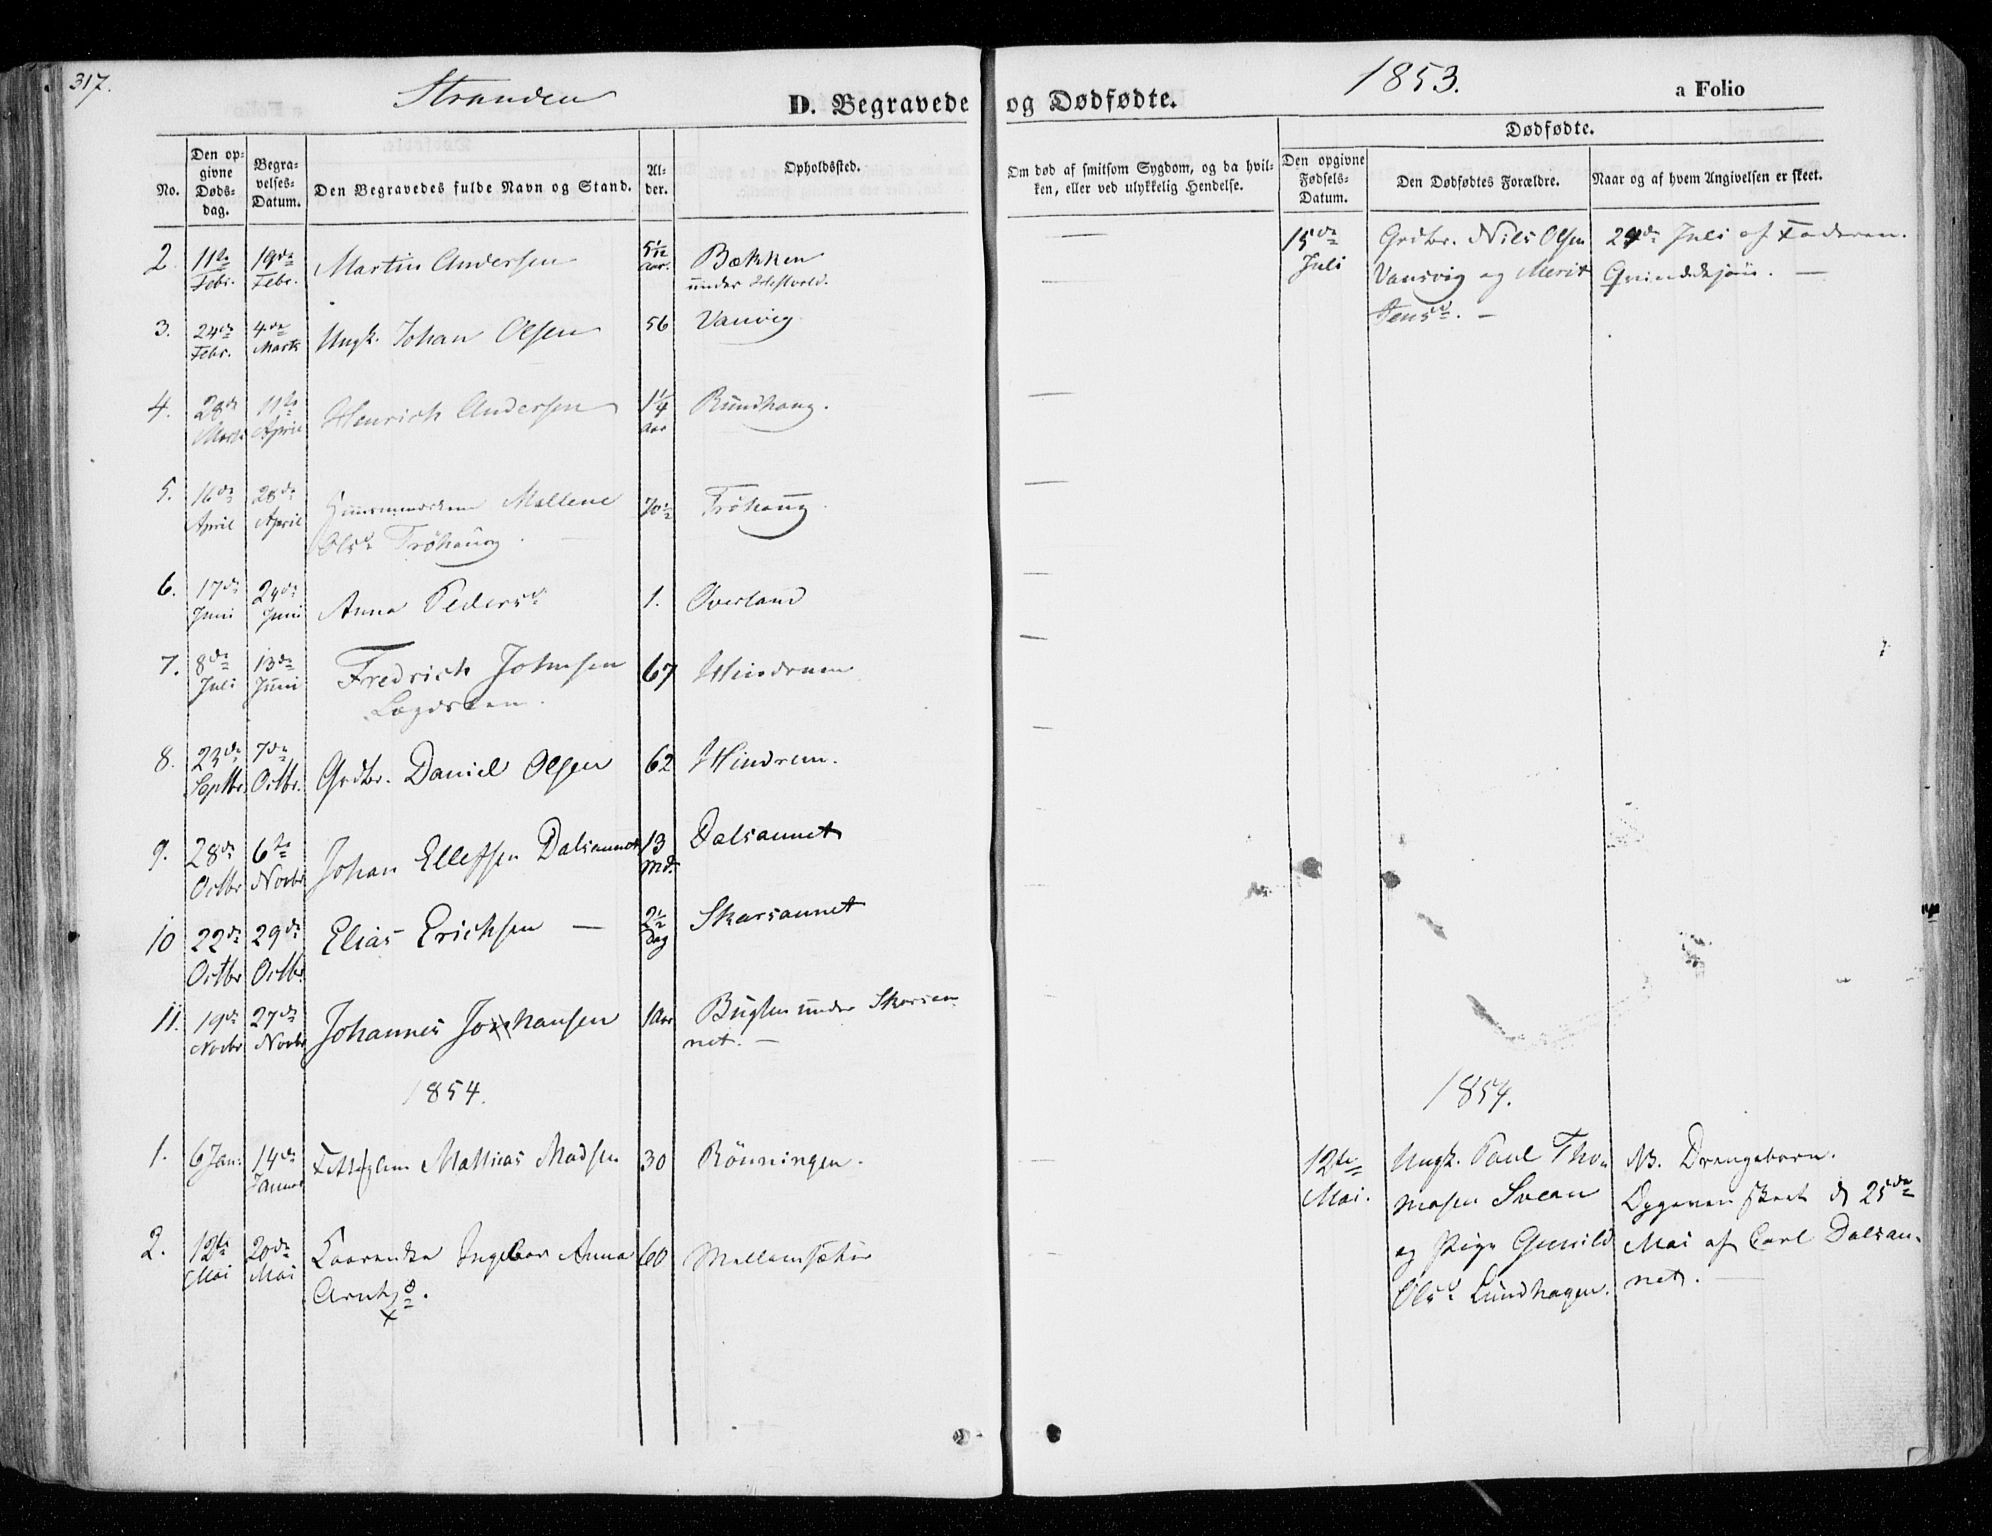 317.
Stranden
D. Begravede og Dødfødte.
1853.
a Folio
No.
Den op-
givne
Døds-
dag.
Begra-
velses-
Datum.
Den Begravedes fulde Navn og Stand.
Al-
der.
Opholdssted.
Om død af smitsom Sygdom, og da hvil-
ken, eller ved ulykkelig Hendelse.
Dødfødte.
Den opgivne
Fødsels-
Datum.
Den Dødfødtes Forældre.
Naar og af hvem Angivelsen er skeet.
2. 11te Febr. 19de Febr. Martin Andersen 5 1/12 Aar. Bækken
under Hestvold.
3. 24de Febr. 4de Marts Ungk. Johan Olsen 56 Vanvig
4. 28de Marts 11te April Henrich Andersen 1 1/4 Aar Rundhaug.
5. 16de April 28de April Mallene 70 1/2 Trøhaug
Olsd. Trøhaug.
6. 17de Juni 24de Juni Anna Pedersd. 1. Overland
7. 8de Juli 13de Juni Fredrich Johnsen 67 Hindrum
Lægdslem.
8. 23de Septbr. 7de Octbr. Grdbr. Daniel Olsen 62 Hindrem.
9. 28de Octbr 6te Novbr Johan Ellefsen Dalsaunet 13 Md. Dalsaunet
10 22de Octbr 29de Octbr. Elias Erichsen — 2 1/2 Dag Skarsaunet
11. 19de Novbr 27de Novbr Johannes Johansen 1 Aar Bugten under Skarsau
net. —
1854.
1. 6 Jan. 14de Januar Mathias Madsen 30 Rönningen.
2. 12te Mai 20de Mai Ingebor Anna 60 Mellemsæter
Arntsd.
15de
Juli
Grdbr. Nils Olsen
Vansvig og Merit
Jensd. —
24de Juli af Faderen.
—
1854.
12te
Mai.
Ungk. Paul Tho-
masen Svean
og Pige Gunild
Olsd. Lundhagen.
NB. Drengebarn.
Opgaven skeet d. 25de
Mai af Carl Dalsau-
net. —